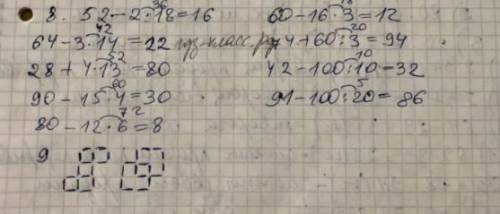 8. 52-2·18=16 60-16·3=12
64-3·14=22 гдз-класс.ру 74+60:3=94
28+4·13=80 42-100:10=32
90-15·4=30 91-100:20=86
80-12·6=8
9